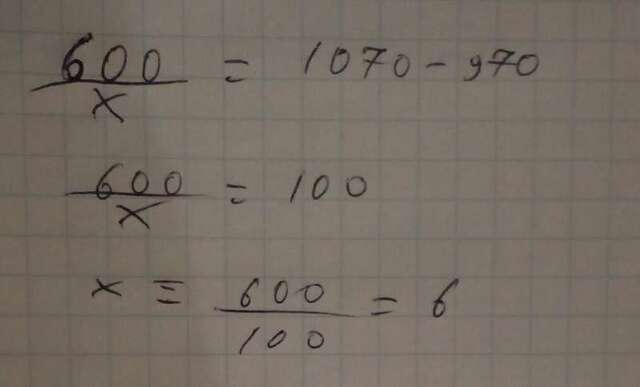 600/x = 1070 - 970
600/x = 100
x = 600/100 = 6